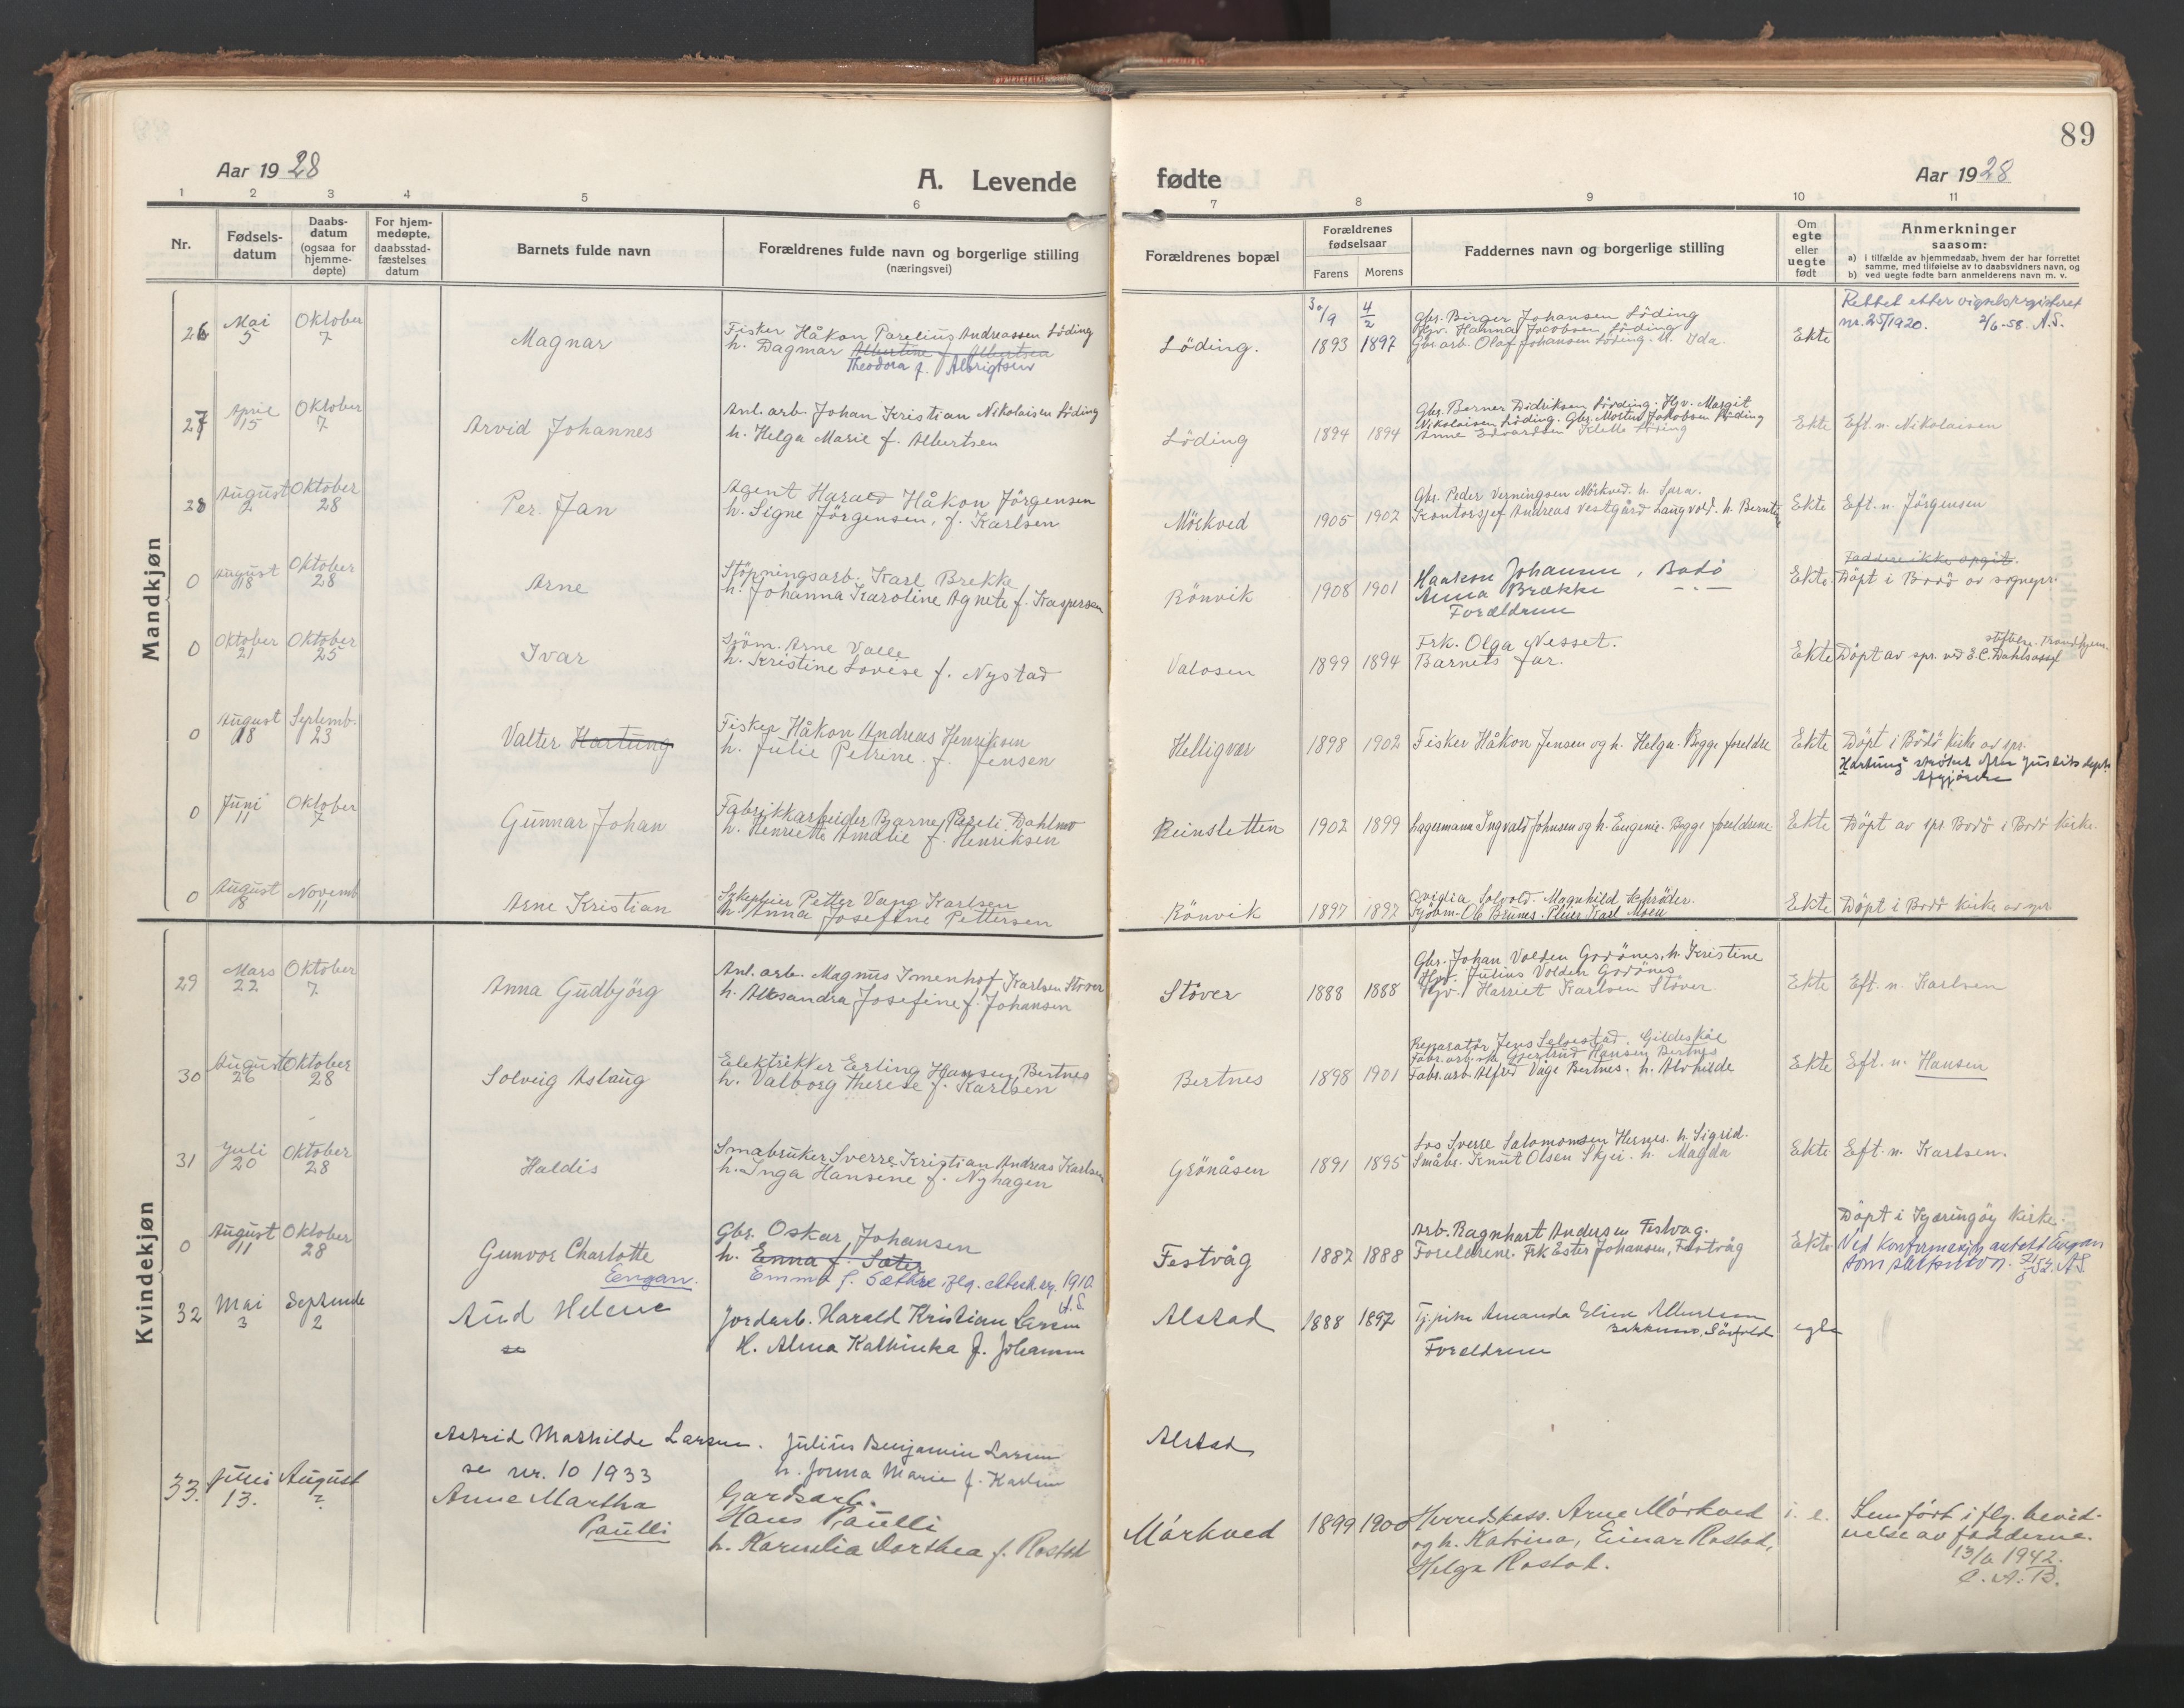 89
Aar 1928
A. Levende fødte
Aar 1928
1 2 3 4 5 6 7 8 9 10 11
Nr.
Fødsels-
datum
Daabs-
datum
(ogsaa for
hjemme-
døpte)
For hjem-
medøpte.
daabsstad-
fæstelses
datum
Barnets fulde navn
Forældrenes fulde navn og borgerlige stilling
(næringsvei)
Forældrenes bopæl
Forældrenes
fødselsaar
Farens Morens
Faddernes navn og borgerlige stilling
Om
egte
eller
uegte
født
Anmerkninger
saasom:
a) i tilfælde av hjemmedaab, hvem der har forrettet
samme, med tilføielse av to daabsvidners navn, og
b) ved uegte fødte barn anmelderens navn m. v.
Mandkjøn
26 Mai 5 Oktober 7
Magnar
Fisker Håkon Parelius Andreassen Löding
h. Dagmar Albertine f. Albertsen
Theodora f. Albrigtsen
Löding.
30/9 1893 4/2 1897
Gbr. Birger Johansen Löding
Hjv. Hanna Jacobsen Löding
Gbr.arb. Olaf Johansen Löding. h. Ida.
Ekte
Rettet etter vigselsregisteret
nr. 25/1920. 2/6-58. A.S.
27 April 15 Oktober 7
Arvid Johannes
Anl. arb. Johan Kristian Nikolaisen Löding
h. Helga Marie f. Albertsen
Löding
1894 1894
Gbr. Berner Didriksen Löding. Hjv. Margit
Nikolaisen Löding. Gbr. Morten Jakobsen Löding
Anne Edvardsen Kletta Löding
Ekte
Eft. n. Nikolaisen
28 August 2 Oktober 28
Per Jan
Agent Harald Håkon Jörgensen
h. Signe Jörgensen, f. Karlsen
Mörkved
1905 1902
Gbr. Peder Verningsen Mörkved. h. Sara.
Kontorsjef Andreas Vestgård Langvold. h. Berntine
Ekte
Eft. n. Jörgensen
0 August 18 Oktober 28
Arne
Stöpningsarb. Karl Brekke
h. Johanna Karoline Agnete f. Kaspersen
Rönvik
1908 1901
Haakon Johansen, Bodö
Anna Brække — . —
Forældrene
Ekte
Faddere ikke opgit.
Döpt i Bodö av sognepr.
0 Oktober 21 Oktober 25
Ivar
Sjöm. Arne Valle
h. Kristine Lovise f. Nystad
Valosen
1899 1894
Frk. Olga Nesset.
Barnets far.
Ekte
Döpt av spr. ved E.C. Dahls
stiftelse. Trondhjem.
0 August 18 Septemb. 23
Valter Hartung
Fisker Håkon Andreas Henriksen
h. Julie Petrine f. Jensen
Helligvær
1898 1902
Fisker Håkon Jensen og h. Helga. Begge foreldre
Ekte
Döpt i Bodö kirke av spr.
Hartung strøket efter Justitsdept.
Avgjörelse
0 Juni 11 Oktober 7
Gunnar Johan
Fabrikkarbeider Bjarne Pareli Dahlmo
h. Henriette Amalie f. Henriksen
Reinsletten
1902 1899
Lagermann Ingvald Johnsen og h. Eugenie. Begge foreldrene.
Ekte
Döpt av spr. Bodö i Bodö kirke.
0 August 8 Novemb 11
Arne Kristian
Sykepleier Petter Vang Karlsen
h. Anna Josefine Pettersen
Rönvik
1897 1892
Ovidia Solvold. Magnhild Schröder.
Sjöm. Ole Brunes. Pleier Karl Moen
Ekte
Döpt i Bodö kirke av spr.
Kvindekjøn
29 Mars 22 Oktober 7
Anna Gudbjörg
Anl. arb. Magnus Imenhof Karlsen Stöver
h. Alksandra Josefine f. Johansen
Stöver
1888 1888
Gbr. Johan Volden Godönes, h. Kristine
Hjv. Julius Volden Godönes
Hjv. Harriet Karlsen Stöver.
Ekte
Eft. n. Karlsen
30 August 26 Oktober 28
Solveig Aslaug
Elektrikker Erling Hansen Bertnes
h. Valborg Therese f. Karlsen
Bertnes
1898 1901
Reparatör Jens Selvestad. Gildeskål
Fabr. arb. Gjertrud Hansen Bertnes
Fabr. arb. Alfred Våge Bertnes. h. Alvhilde
Ekte
Eft. n. Hansen
31 Juli 20 Oktober 28
Haldis
Småbruker Sverre Kristian Andreas Karlsen
h. Inga Hansine f. Nyhagen
Grönåsen
1891 1895
Los Sverre Salomonsen Hernes. h. Sigrid.
Småbr. Knut Olsen Skjei. h. Magda
Ekte
Eft. n. Karlsen.
0 August 11 Oktober 28
Gunvor Charlotte
Eengan.
Gbr. Oskar Johansen
h. Emma f. Sæter
Emma f. Sæthre iflg. 1910.
A.S.
Festvåg
1887 1888
Arb. Ragnhart Andersen Festvåg.
Foreldrene. Frk Ester Johansen, Festvåg
Ekte
Döpt i Kjæringöy kirke.
Ved konfirmasjon antatt Engan
som slektsnavn. A.S.
32 Mai 3 September 2
Aud Helene
se
Jordarb. Harald Kristian Larsen
H. Alma Kathinka f. Johansen
Alstad
1888 1897
Tj.pike Amanda Eline Albertsen
Bakkemo, Sörfold
Foreldrene
egte
Astrid Mathilde Larsen.
se nr. 10 1933
Julius Benjamin Larsen
h. Jonna Marie f. Karlsen
Alstad
33. Juli 13. August ?
Anne Martha
Paulli
Gardsarb.
Hans Paulli
h. Karnelia Dorthea f. Rostad
Mörkved
1899 1900
Herredskass. Arne Mörkved
og h. Katrina, Einar Rostad,
Helga Rostad.
i. e.
Innfört iflg. bevid-
nelse av fadderne.
13/6 1942.
C. A. B.